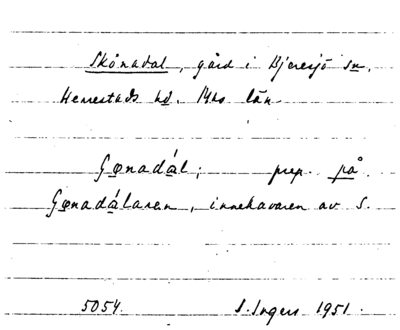 Skönadal, gård i Bjeresjö sn.
Herrestads hd. Mhs län.
Gǿnadál; prep. på.
Gǿnadálaren, innehavaren av S.
5054. I. Ingers 1951.